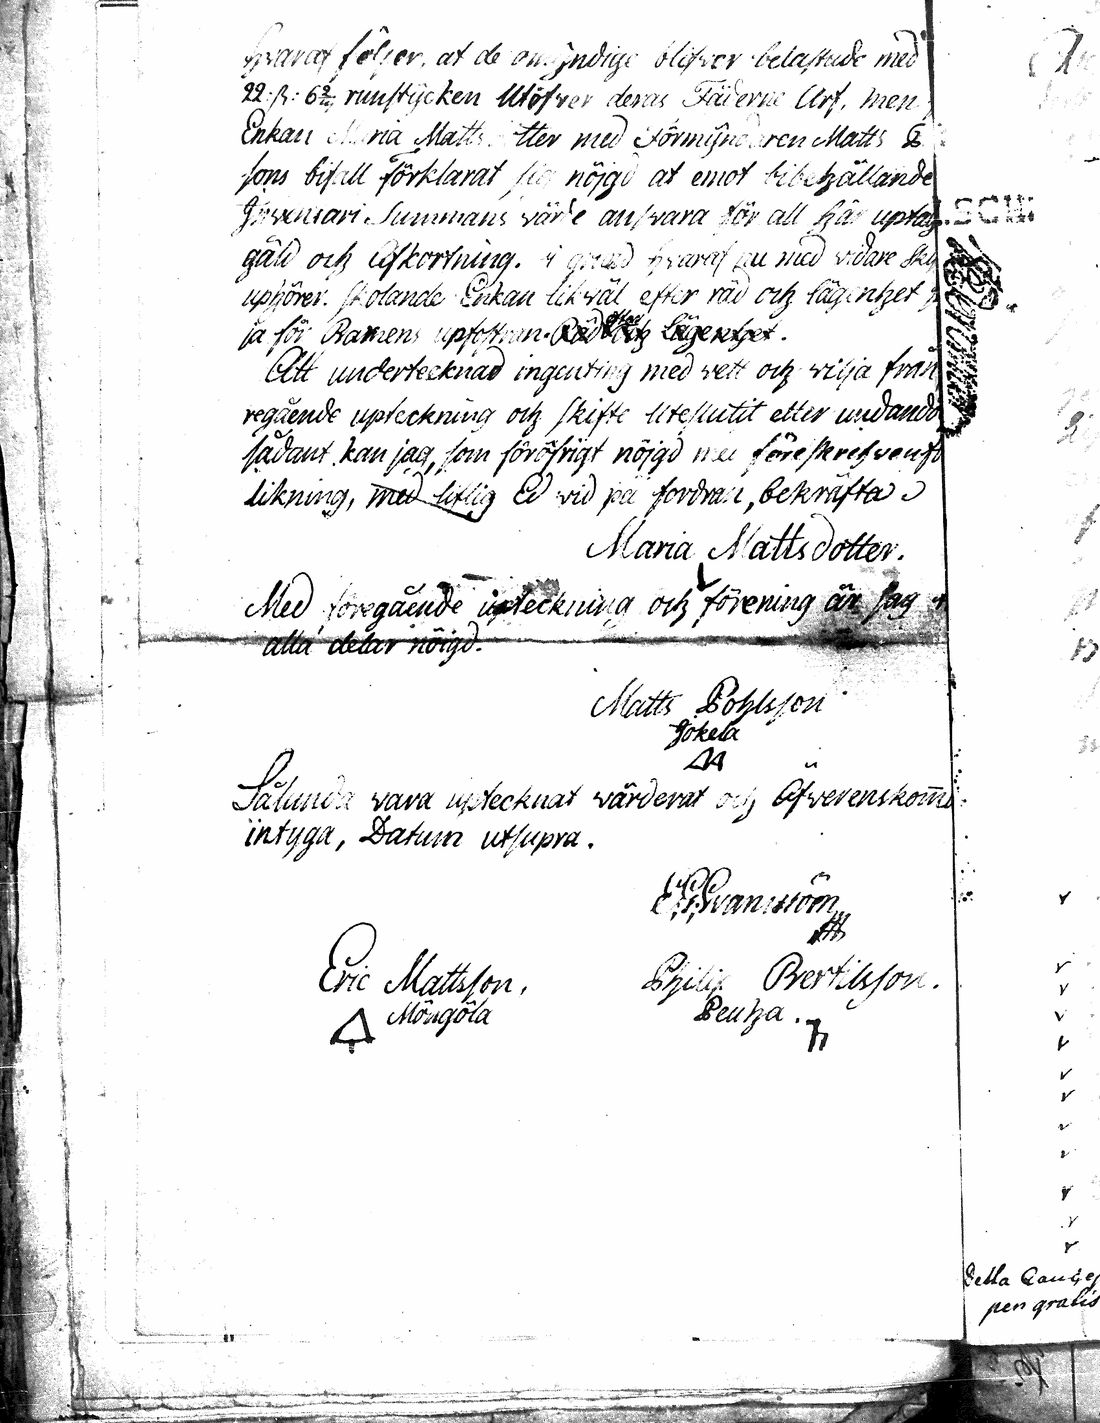 hvaraf följer, at de omyndige blifver belastade med
22 ß: 6 2/ runstycken Utöfver deras Fäderne Arf, men
Enkan Maria Matts dotter med Förmyndaren Matts
sons bifall förklarat sig nöjgd at emot bibehållande
Inventari Summans värde ansvara för all här uptag
gäld och Afkortning. i grund hvaraf nu med vidare
uphörer. skolande Enkan likväl efter råd och lägenhet
ja för Barnens upfostran. Råd och Lägenhet.
Att undertecknad ingenting med vett och vilja från
regående upteckning och skifte uteslutit eller undandö
sådant kan jag, som föröfrigt nöjgd med föreskrefvenfö
likning, med liflig Ed vid på fordran, bekräfta
Maria Mattsdotter.
Med föregående upteckning och förening är jag
alla delar nöigd.
Matts Pohlsson
Jokela
Sålunda vara uptecknat värderat och Äfverenskom̄
intyga, Datum utsupra.
Eric Mattsson,
Möngöla
Philip Bertilsson.
Peuha.
Detta
pen gratis